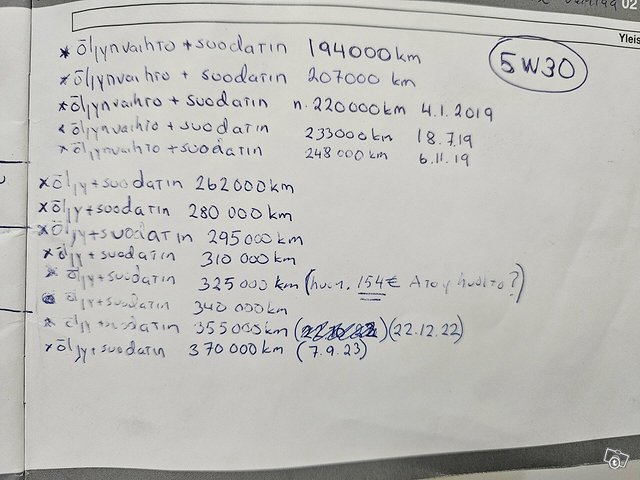 02
Yleis
* öljynvaihto + suodatin 194000 km
5W30
* öljynvaihto + suodatin 207000 km
* öljynvaihto + suodatin n. 220000km 4.1.2019
* öljynvaihto + suodatin 233000 km 18.7.19
* öljynvaihto + suodatin 248 000 km 6.11.19
x öljy + suodatin 262000 km
x öljy + suodatin 280 000 km
x öljy + suodatin 295000 km
x öljy + suodatin 310 000 km
x öljy + suodatin 325000 km (huom. 154€
öljy + suodatin 340 000km
x öljy + suodatin 355000km (22.12.22)
x öljy + suodatin 370 000 km (7.9.23)